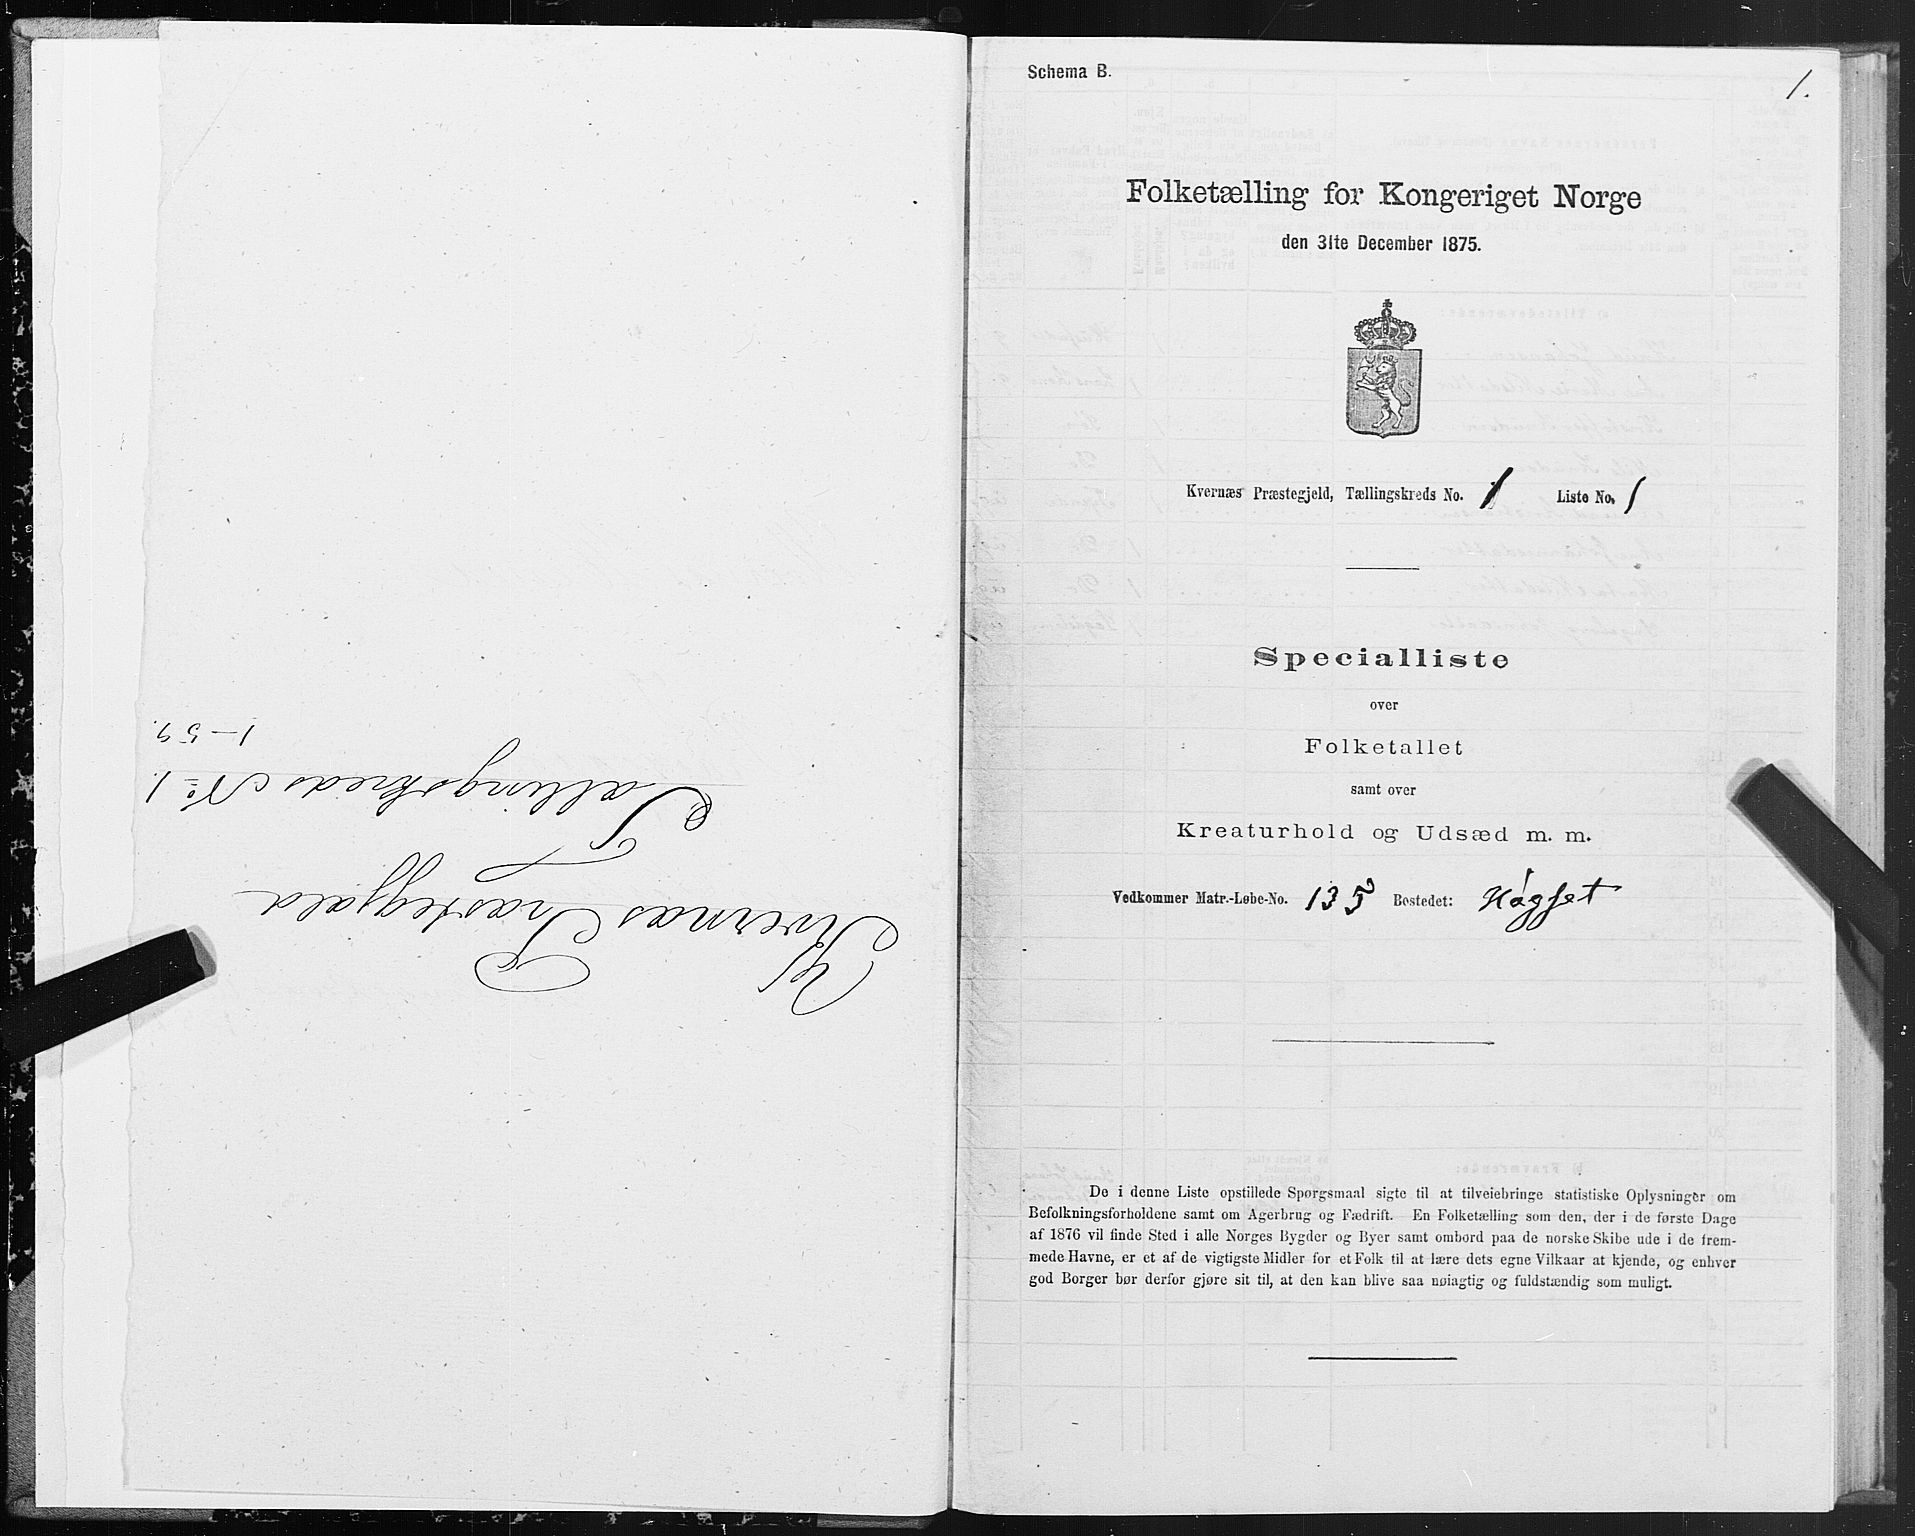 Kvernæs Præstegjæld
Tællingskreds No 1.
1–59.
Schema B.
1.
Folketælling for Kongeriget Norge
den 31te December 1875.
Kvernæs Præstegjeld, Tællingskreds No. 1 Liste No. 1
Specialliste
over
Folketallet
samt over
Kreaturhold og Udsæd m. m.
Vedkommer Matr.-Løbe-No. 135 Bostedet: Høgset
De i denne Liste opstillede Spørgsmaal sigte til at tilveiebringe statistiske Oplysninger om
Befolkningsforholdene samt om Agerbrug og Fædrift. En Folketælling som den, der i de første Dage
af 1876 vil finde Sted i alle Norges Bygder og Byer samt ombord paa de norske Skibe ude i de frem-
mede Havne, er et af de vigtigste Midler for et Folk til at lære dets egne Vilkaar at kjende, og enhver
god Borger bør derfor gjøre sit til, at den kan blive saa nøiagtig og fuldstændig som muligt.